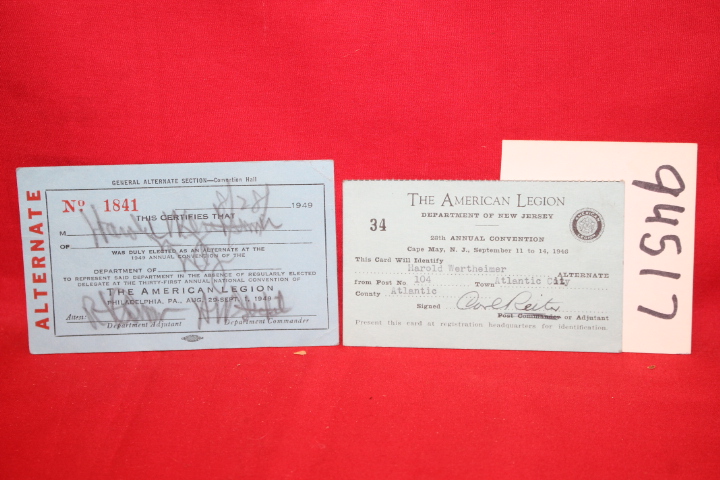 GENERAL ALTERNATE SECTION—Convention Hall
ALTERNATE
No 1841 8/28/ 1949
THIS CERTIFIES THAT
M Harold
OF
WAS DULY ELECTED AS AN ALTERNATE AT THE
1949 ANNUAL CONVENTION OF THE
DEPARTMENT OF
TO REPRESENT SAID DEPARTMENT IN THE ABSENCE OF REGULARLY ELECTED
DELEGATE AT THE THIRTY-FIRST ANNUAL NATIONAL CONVENTION OF
THE AMERICAN LEGION
PHILADELPHIA, PA., AUG. 29-SEPT. 1, 1949
Attest:
Department Adjutant Department Commander
THE AMERICAN LEGION
34 DEPARTMENT OF NEW JERSEY
ANNUAL CONVENTION
Cape May, N. J., September 11 to 14, 1946
This Card Will Identify
Harold Wertheimer ALTERNATE
from Post No 104 Town Atlantic City
County Atlantic
Signed Carl Reiter
Post Commander or Adjutant
Present this card at registration headquarters for identification.
94517